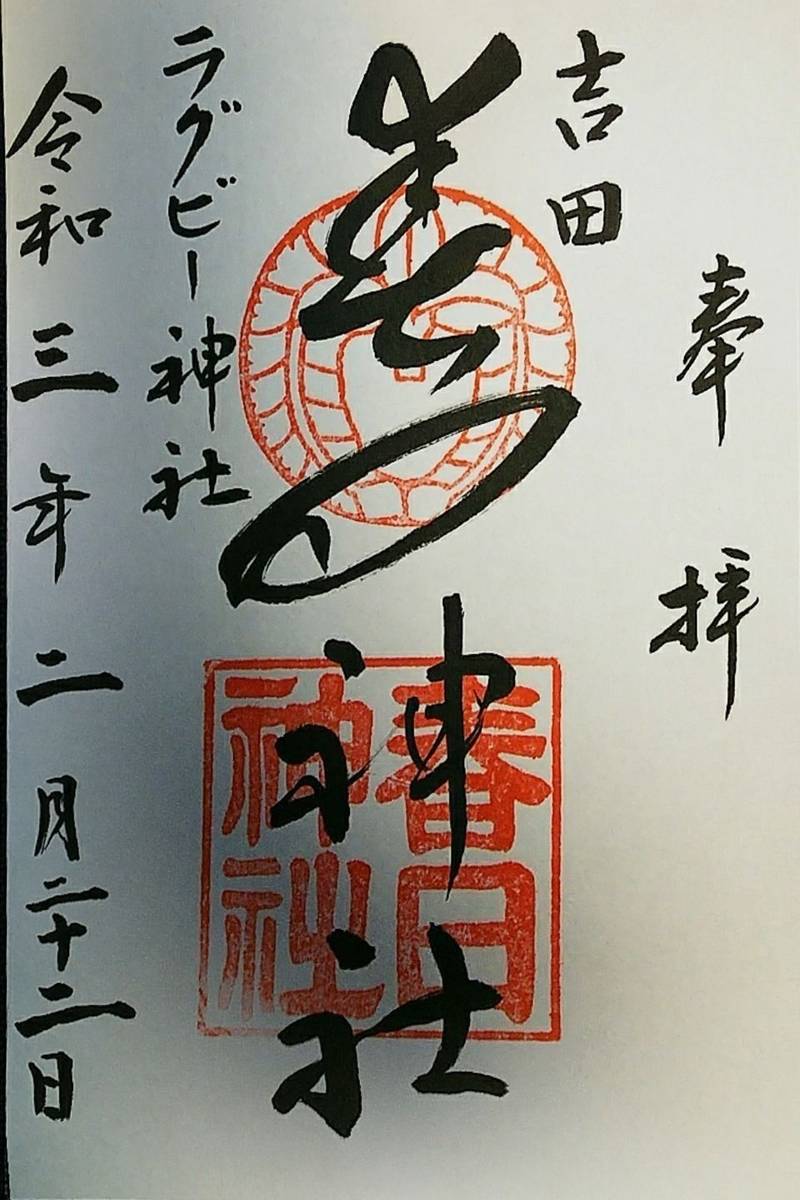 奉拝
吉田
春日神社
春日
神社
ラグビー神社
令和三年二月二十二日